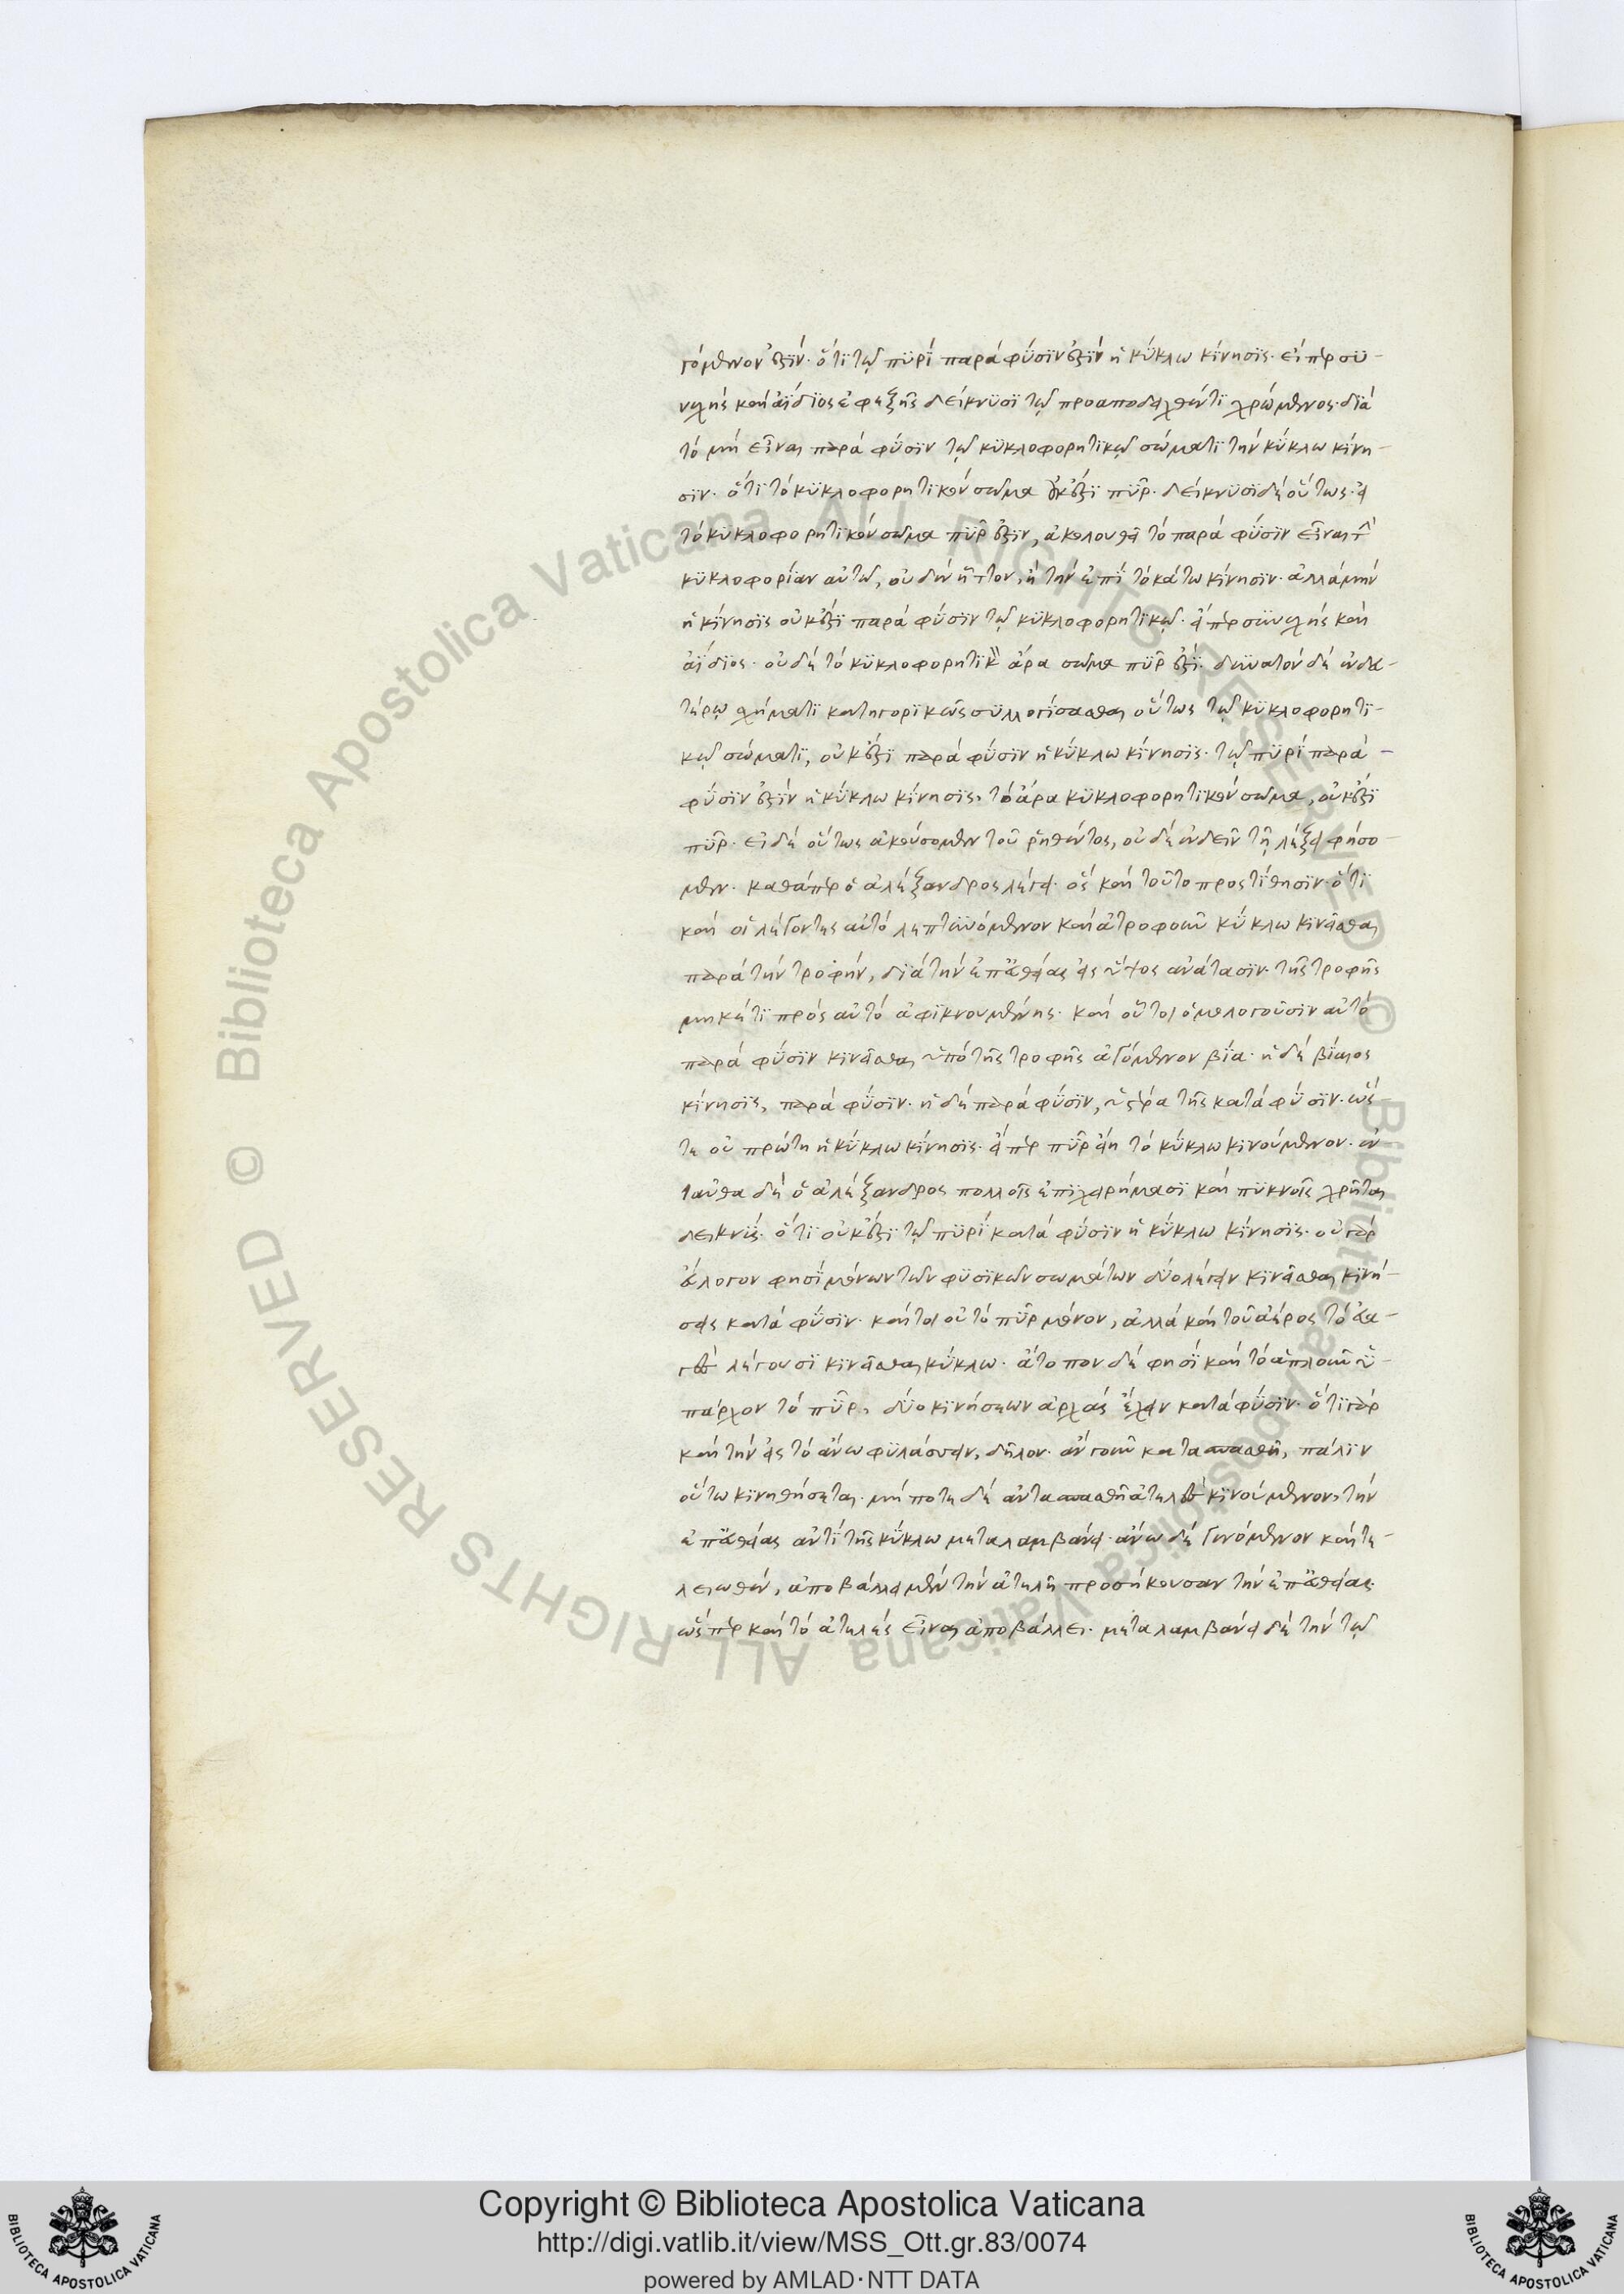 γόμενον ἐστίν· ὅτι τῷ πυρὶ παρὰ φύσιν ἐστὶν ἡ κύκλω κίνησις· εἴπερ συ-
νεχὴς καὶ ἀΐδιος ἐφεξῆς δείκνυσι τῷ προαποδειχθέντι χρώμενος· διὰ
τὸ μὴ εἶναι παρὰ φύσιν τῷ κυκλοφορητικῷ σώματι τὴν κύκλω κίνη-
σιν· ὅτι τὸ κυκλοφορητικὸν σῶμα οὐκ ἔστι πῦρ· δείκνυσι δὲ οὕτως· εἰ
τὸ κυκλοφορητικὸν σῶμα πῦρ ἐστιν, ἀκολουθεῖ τὸ παρὰ φύσιν εἶναι τὴν
κυκλοφορίαν αὐτῶ, οὐδὲν ἧττον, ἢ τὴν ἐπὶ τὸ κάτω κίνησιν· ἀλλὰ μὴν
ἡ κίνησις οὐκ ἔστι παρὰ φύσιν τῷ κυκλοφορητικῷ· εἴπερ συνεχὴς καὶ
ἀΐδιος· οὐδὲ τὸ κυκλοφορητικὸν ἄρα σῶμα πῦρ ἐστί· δυνατὸν δὲ ἐν δευ-
τέρῳ σχήματι κατηγορικῶς συλλογίσασθαι οὕτως τῷ κυκλοφορητι-
κῷ σώματι, οὐκ ἔστι παρὰ φύσιν ἡ κύκλω κίνησις· τῷ πυρὶ παρὰ
φύσιν ἐστὶν ἡ κύκλω κίνησις, τὸ ἄρα κυκλοφορητικὸν σῶμα, οὐκ ἔστι
πῦρ· εἰ δὲ οὕτως ἀκούσομεν τοῦ ῥηθέντος, οὐδὲ ἐνδεῖν τῇ λέξει φήσο-
μεν· καθάπερ ὁ ἀλέξανδρος λέγει· ὃς καὶ τοῦτο προστίθησιν· ὅτι
καὶ οἱ λέγοντες αὐτὸ λεπτυνόμενον καὶ ἀτροφοῦν κύκλω κινεῖσθαι
παρὰ τὴν τροφὴν, διὰ τὴν ἐπ' εὐθείας εἰς ὕψος ἀνάτασιν· τῆς τροφῆς
μηκέτι πρὸς αὐτὸ ἀφικνουμένης· καὶ οὗτοι ὁμολογοῦσιν αὐτὸ
παρὰ φύσιν κινεῖσθαι ὑπὸ τῆς τροφῆς ἀγόμενον βία· ἡ δὲ βίαιος
κίνησις, παρὰ φύσιν· ἡ δὲ παρὰ φύσιν, ὑστέρα τῆς κατὰ φύσιν· ὥσ-
τε οὐ πρώτη ἡ κύκλω κίνησις· εἴπερ πῦρ εἴη τὸ κύκλω κινούμενον· ἐν
ταῦθα δὲ ὁ ἀλέξανδρος πολλοῖς ἐπιχειρήμασι καὶ πυκνοῖς χρῆται
δεικνὺς· ὅτι οὐκ ἔστι τῷ πυρὶ κατὰ φύσιν ἡ κύκλω κίνησις· οὐ γὰρ
εὔλογον φησὶ μόνων τῶν φυσικῶν σωμάτων δύο λέγειν κινεῖσθαι κινή-
σεις κατὰ φύσιν· καίτοι οὐ τὸ πῦρ μόνον, ἀλλὰ καὶ τοῦ ἀέρος τὸ ἄνω-
λέγουσι κινεῖσθαι κύκλω· ἄτοπον δέ φησὶ καὶ τὸ ἁπλοῦν ὑ-
πάρχον τὸ πῦρ, δύο κινήσεων ἀρχὰς ἔχειν κατὰ φύσιν· ὅτι γὰρ
καὶ τὴν εἰς τὸ ἄνω φυλάσσειν, δῆλον· ἂν γοῦν κατασπασθῆ, πάλιν
οὕτω κινηθήσεται· μήποτε δὲ ἐνταῦθα ἀτελὲς κινούμενον, τὴν
ἐπ' εὐθείας ἀντὶ τῆς κύκλω μεταλαμβάνει· ἄνω δὲ γενόμενον καὶ τε-
λειωθὲν, ἀποβάλλει μὲν τὴν ἀτελῆ προσήκουσαν τὴν ἐπ' εὐθείας·
ὥσπερ καὶ τὸ ἀτελὲς εἶναι ἀποβάλλει· μεταλαμβάνει δὲ τὴν τῷ
Copyright © Biblioteca Apostolica Vaticana
http://digi.vatlib.it/view/MSS_Ott.gr.83/0074
powered by AMLAD·NTT DATA
BIBLIOTECA APOSTOLICA VATICANA
BIBLIOTECA APOSTOLICA VATICANA
© Biblioteca Apostolica Vaticana ALL RIGHTS RESERVED
© Biblioteca Apostolica Vaticana ALL RIGHTS RESERVED